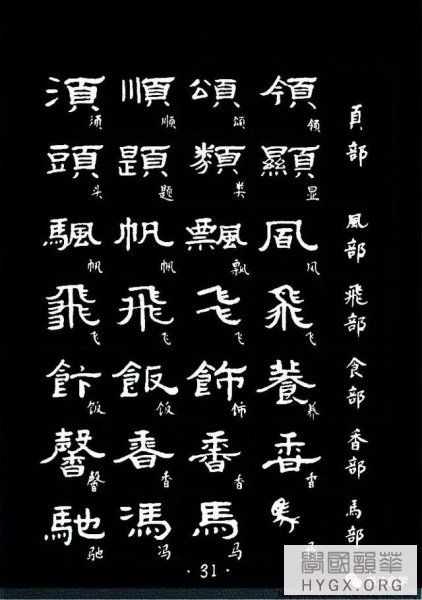 頁部
領 頌 順 須
领 颂 顺 须
顯 類 題 頭
显 类 题 头
風部
風 飄 帆 颿
风 飘 帆 帆
飛部
飛 飛 飛 飛
飞 飞 飞 飞
食部
養 飾 飯 飰
养 饰 饭 饭
香部
香 香 香 馨
香 香 香 馨
馬部
馬 馬 馮 馳
马 冯 驰
·31·
學國韻華
HYGX.ORG